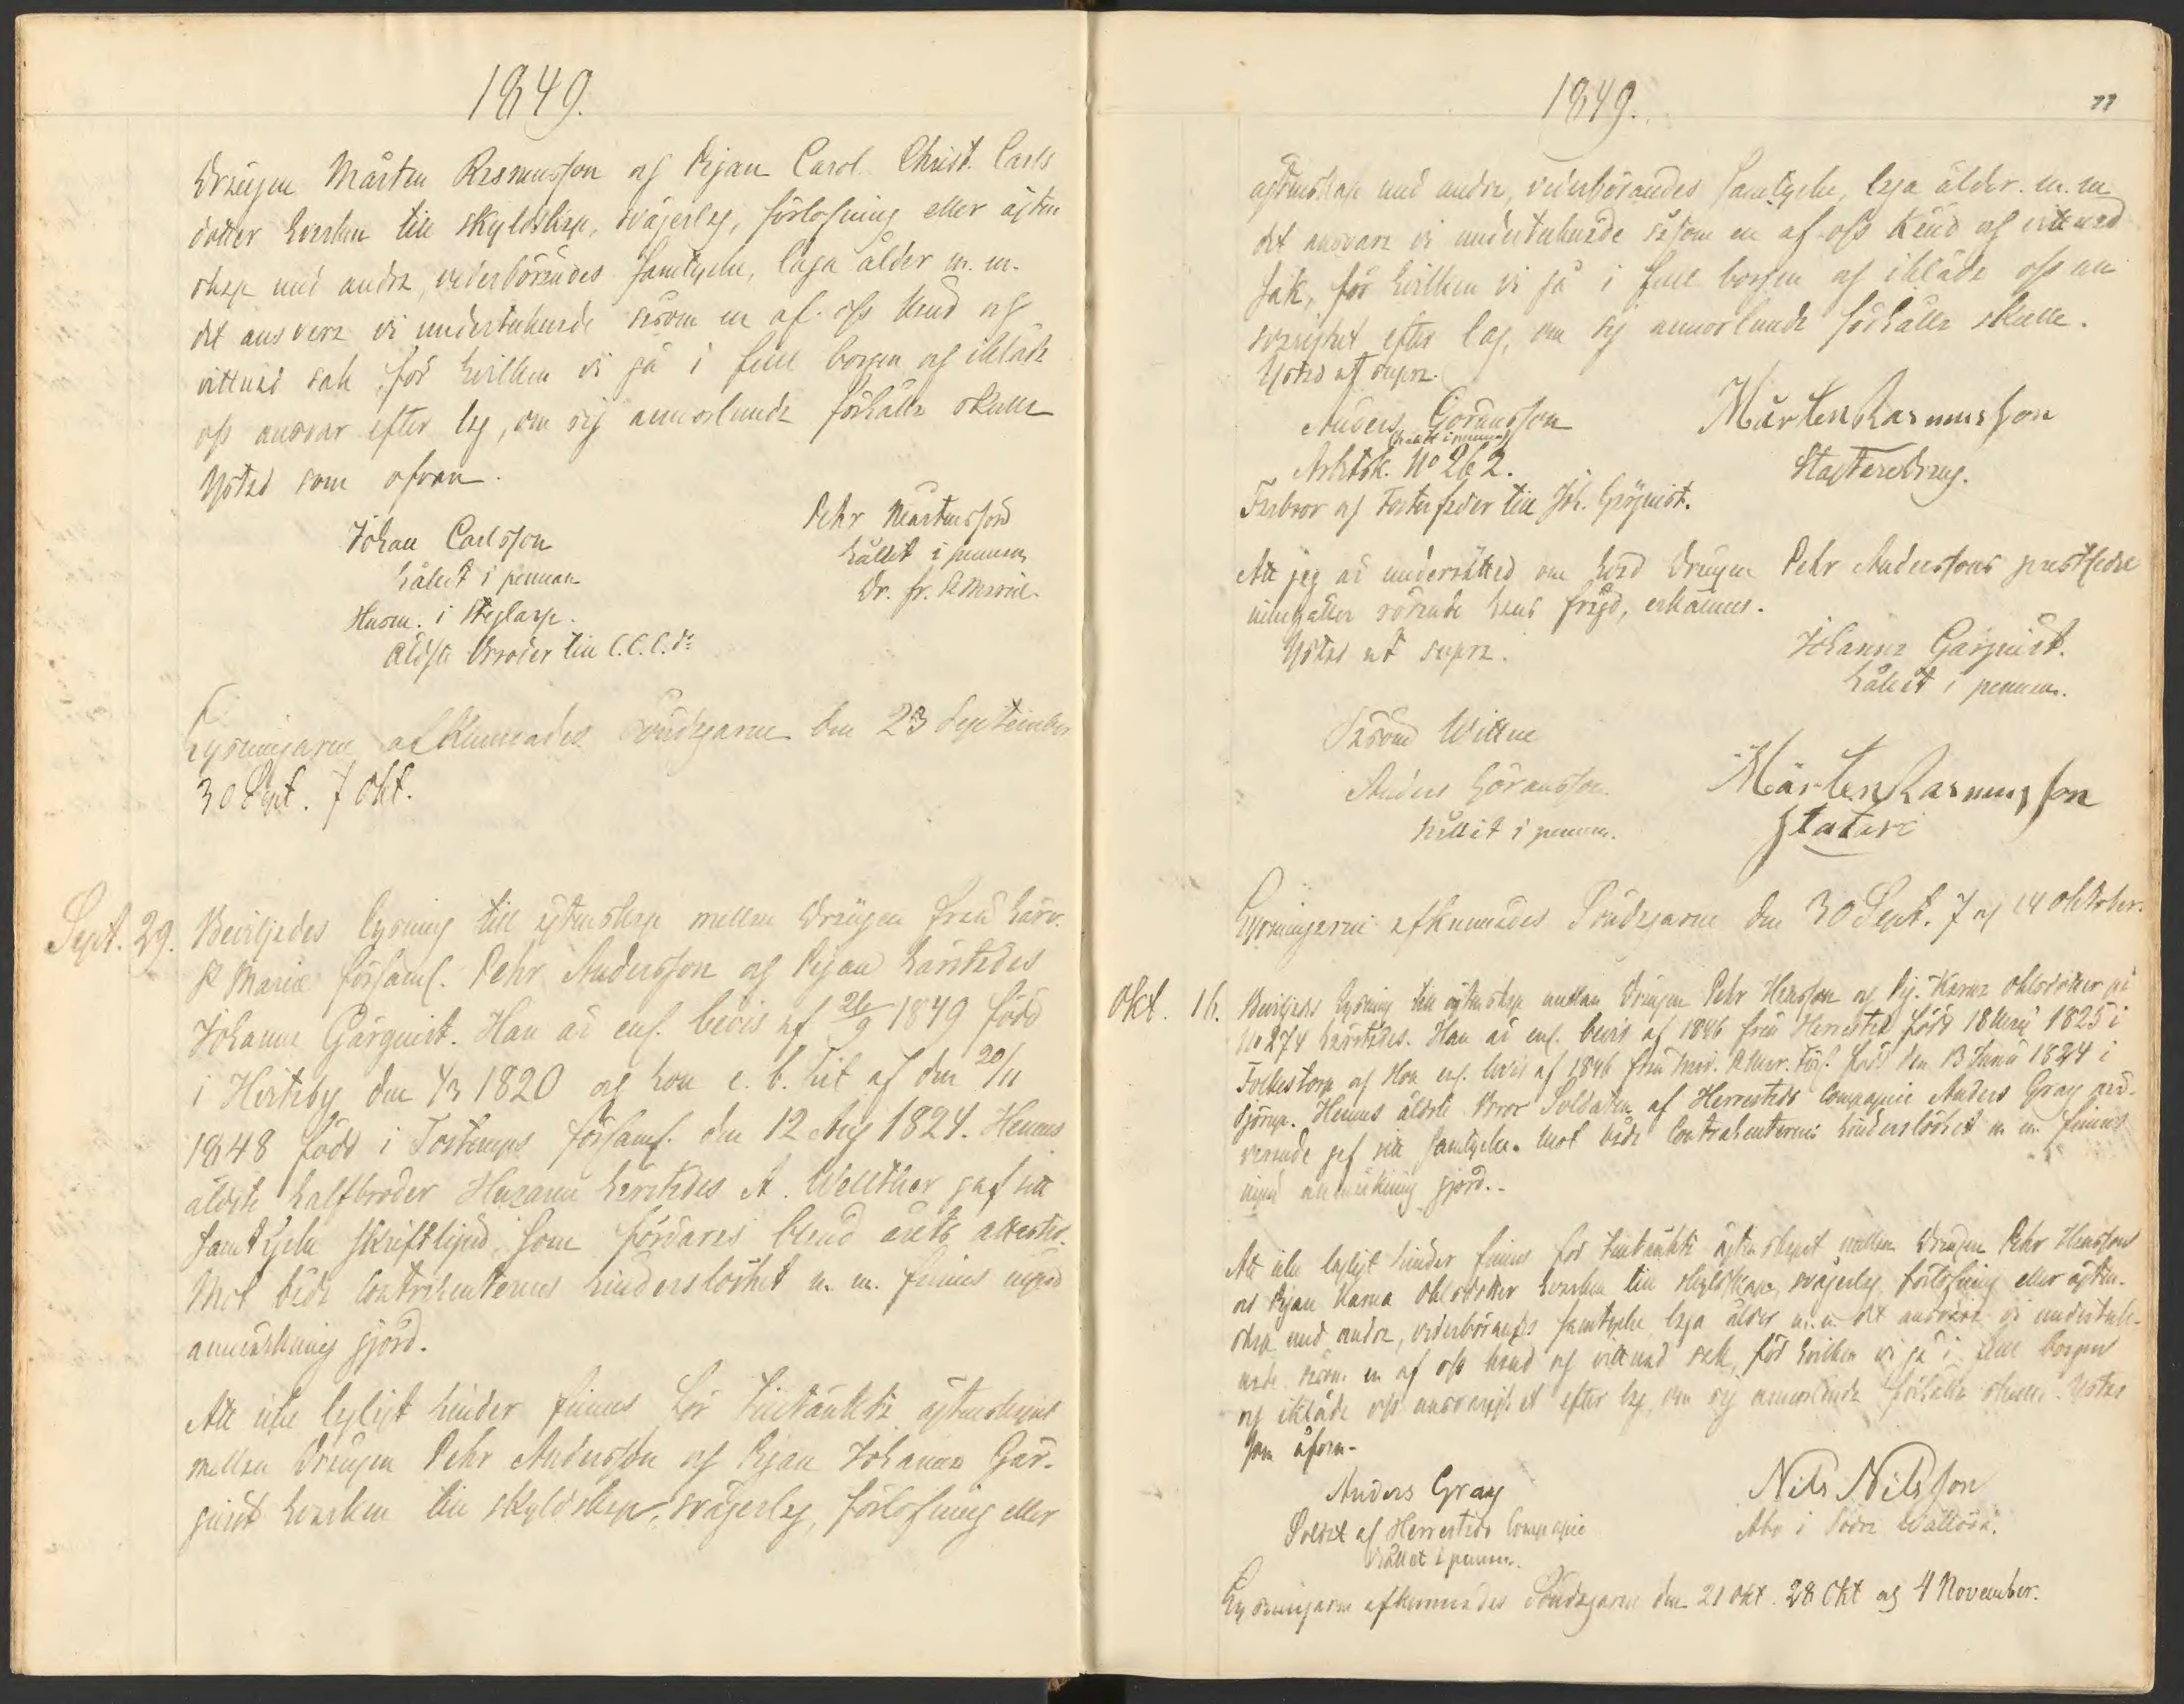 1849.
Drängen Mårten Rasmusson och Pigan Carol. Christ. Carls
dotter hvarken till skyldskap, svågerlag, förlofning eller äkten
skap med andra, vederbörandes samtycke, laga ålder m. m.
det ansvara vi undertecknade såsom en af oss känd och
vittnad sak, för hvilken vi gå i full borgen och ikläda
oss ansvar efter lag, om sig annorlunda förhålla skulle
Ystad som ofvan.
Johan Carlsson
hållit i pennan
Husm. i
äldsta broder till C. C. C. dr
Pehr Mårtensson
hållit i pennan
Dr. fr. S. Mariæ
Lysningarne afkunnades Söndagarne den 23 September
30 Sept. 7 Okt.
Sept. 29. Beviljades lysning till äktenskap mellan Drängen från härv.
S. Mariæ församl. Pehr Andersson och Pigan härstädes
Johanna Gärquist. Han är enl. bevis af 26/9 1849 född
i den 4/3 1820 och hon e. b. hit af den 20/11
1848 född i församl. den 12 Aug 1824. Hennes
äldste halfbroder härstädes A. gaf sitt
samtycke skriftligen, som förvaras bland årets attester.
Mot både Contrahenternes hinderslöshet m. m. finnes ingen
anmärkning gjord.
Att icke lagligt hinder finnes för tilltänkta äktenskapet
mellan Drängen Pehr Andersson och Pigan Johanna Gär-
quist hvarken till skyldskap, svågerlag, förlofning eller
1849.
77
äktenskap med andra, vederbörandes samtycke, laga ålder m. m
det ansvara vi undertecknade såsom en af oss känd och vittnad
sak, för hvilken vi gå i full borgen och ikläda oss an
svarighet efter lag, om sig annorlunda förhålla skulle.
Ystad ut supra.
Anders Göransson
(hållit i pennan)
Arbetsk. No 262.
Farbror och Fosterfader till Joh. Gärquist.
Mårten Rasmusson
Att jag är underrättad om hvad Drängen Pehr Anderssons prestbetyg
innehåller rörande hans frejd, erkännes.
Ystad ut supra.
Johanna Gärquist.
hållit i pennan.
Såsom Wittne
Anders Göransson
hållit i pennan.
Mårten Rasmusson
Statare
Lysningarne afkunnades Söndagarne den 30 Sept. 7 och 14 Oktober.
Okt. 16. Beviljades lysning till äktenskap mellan Drängen Pehr Hansson och Pig. Karna Ohlsdotter på
No 274 härstädes. Han är enl. bevis af 1846 från Herrestad född 18 1825 i
Folkestorp och Hon enl. bevis af 1846 från S. Mar. Förs. född den 13 Junii 1824 i
Sjörup. Hennes äldste Bror Soldaten af Herrestads Compagnie Anders Gray när-
varande gaf sitt samtycke. Mot både Contrahenternes hinderslöshet m. m. finnes
ingen anmärkning gjord.-
Att icke lagligt hinder finnes för tilltänkta äktenskapet mellan Drängen Pehr Hansson
och Pigan Karna Ohlsdotter hvarken till skyldskap, svågerlag, förlofning eller äkten-
skap med andra, vederbörandes samtycke laga ålder m. m. det ansvara vi underteck-
nade såsom en af oss känd och vittnad sak, för hvilken vi gå i full borgen
och ikläde oss ansvarighet efter lag om sig annorlunda förhålla skulle. Ystad
som åfvan-
Anders Gray
Soldat af Herrestads Compagnie
hållit i pennan.
Nils Nilsson
Åbo i Södra Wallösa.
Lysningarne afkunnades Söndagarne den 21 Okt. 28 Okt och 4 November.